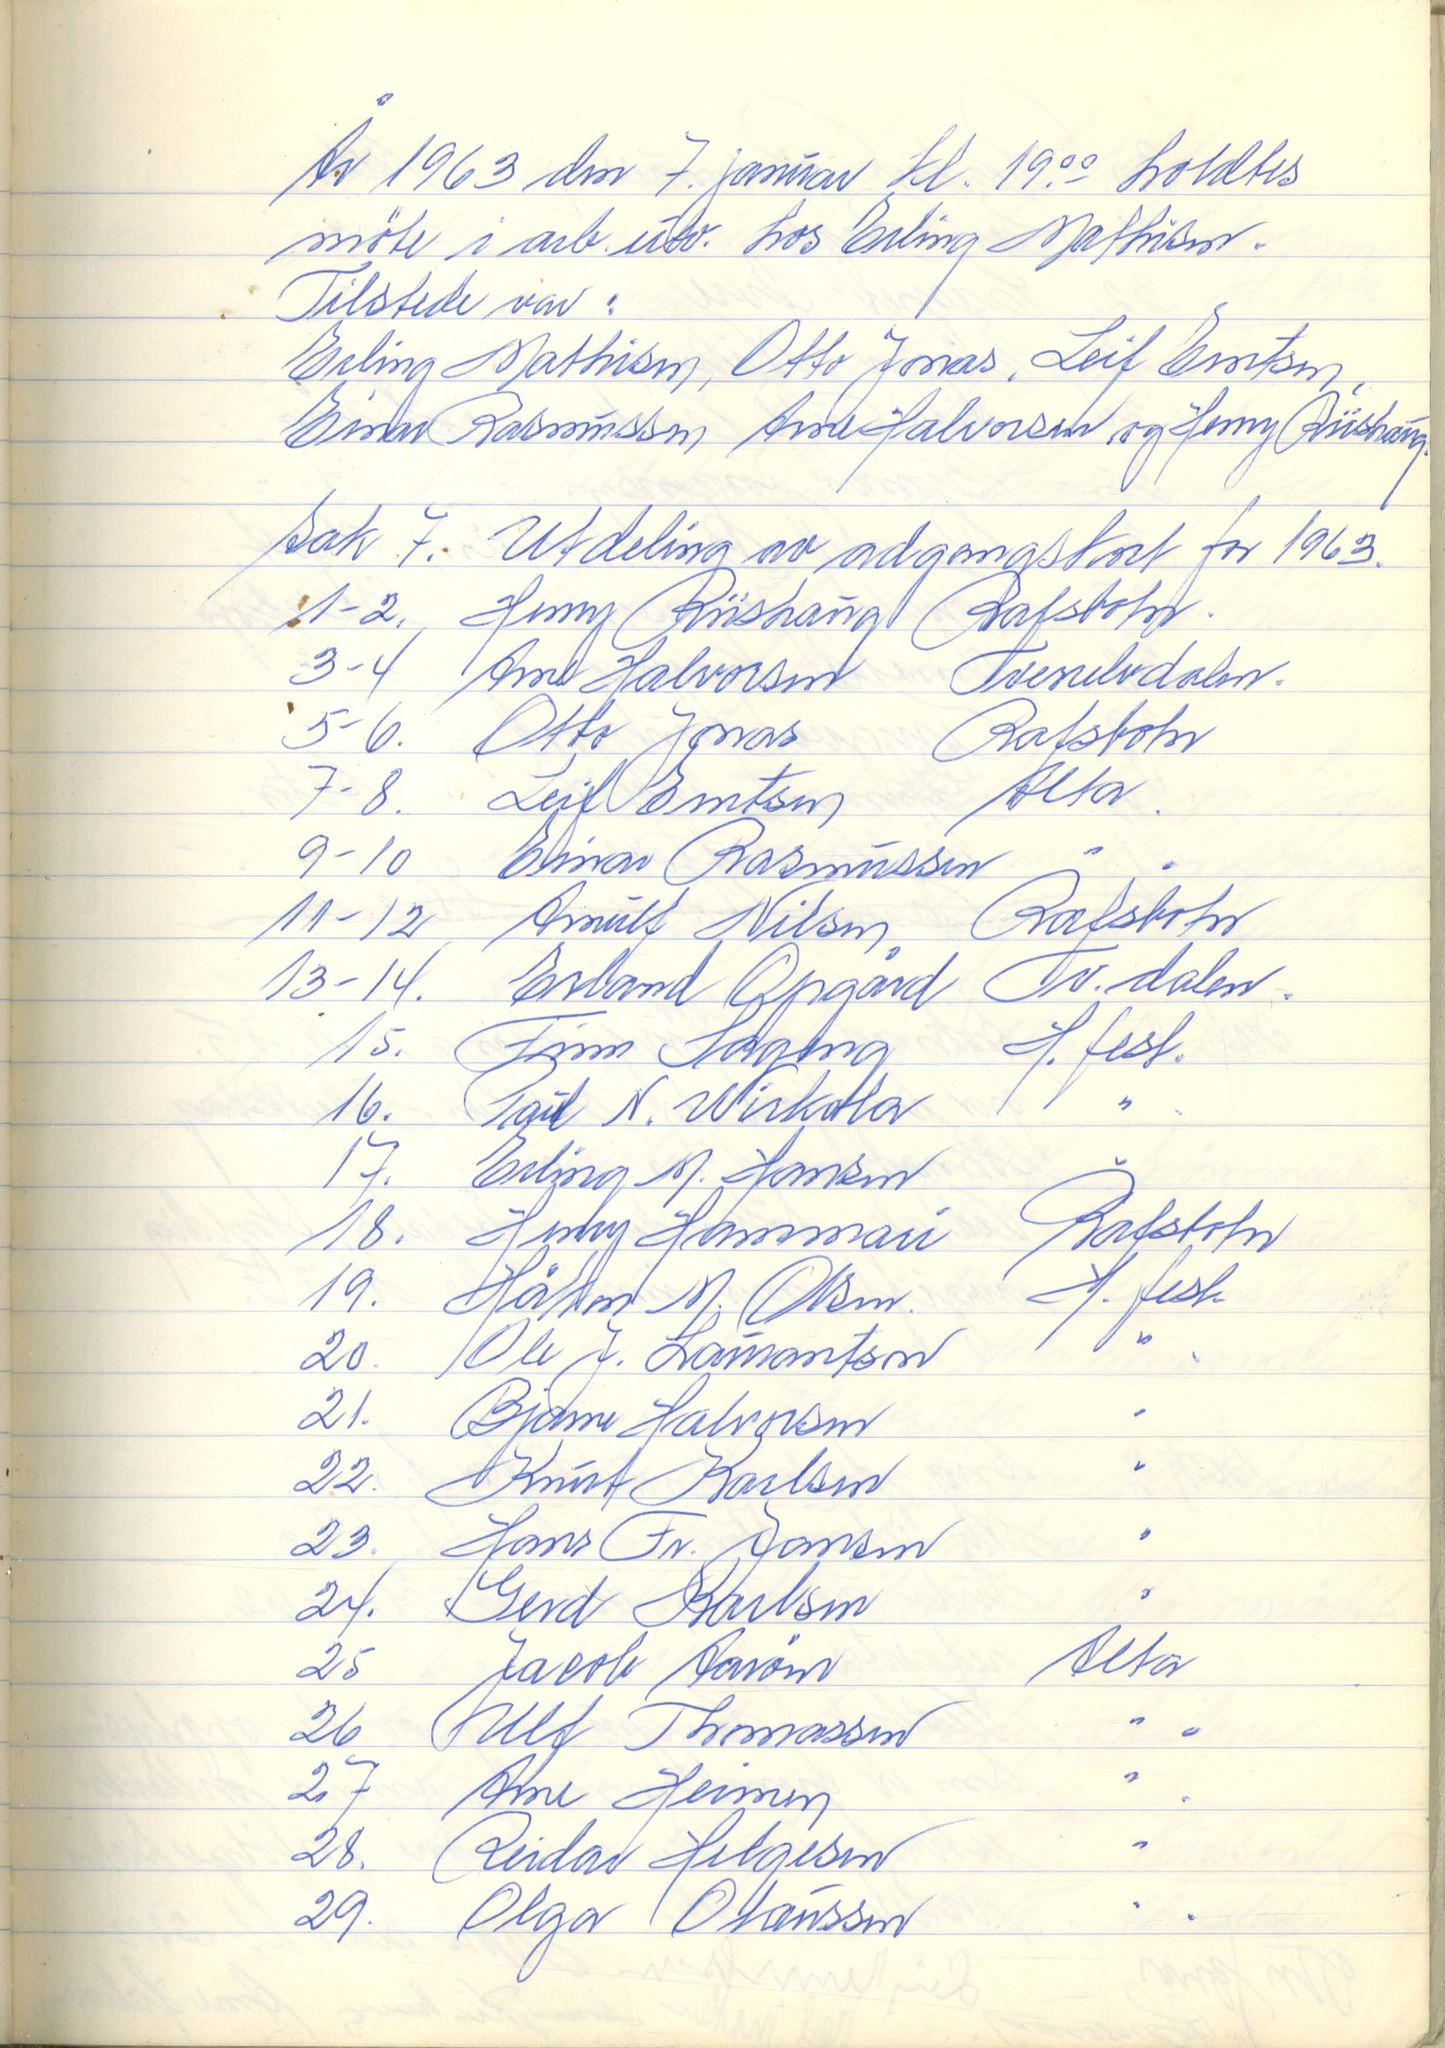 År 1963 den 7. januar kl. 19.00 holdtes
möte i arb. utv. hos Erling Mathisen.
Tilstede var:
Erling Mathisen, Otto Jonas, Leif Erntsen,
Einar Rasmussen, Arne Halvorsen og Henry Riishaug.
Sak 7. Utdeling av adgangskort for 1963.
1-2. Henry Riishaug Rafsbotn.
3-4 Arne Halvorsen Tverrelvdalen.
5-6. Otto Jonas Rafsbotn
7-8. Leif Erntsen Alta.
9-10 Einar Rasmussen " .
11-12 Arnulf Nilsen, Rafsbotn
13-14. Erland Opgård Tv. dalen.
15. Finn Sageng H. fest.
16. Paul N. Wirkola "
17. Erling M. Hansen "
18. Henry Hammari Rafsbotn
19. Håkon M. Olsen. H. fest.
20. Ole J. Lauvantson "
21. Bjarne Halvorsen "
22. Knut Karlsen "
23. Hans Fr. Jansen "
24. Gerd Karlsen "
25 Jacob Aarön Alta
26 Ulf Thomassen " .
27 Arne Heimen " .
28. Reidar Helgesen "
29. Olga Olaussen " .